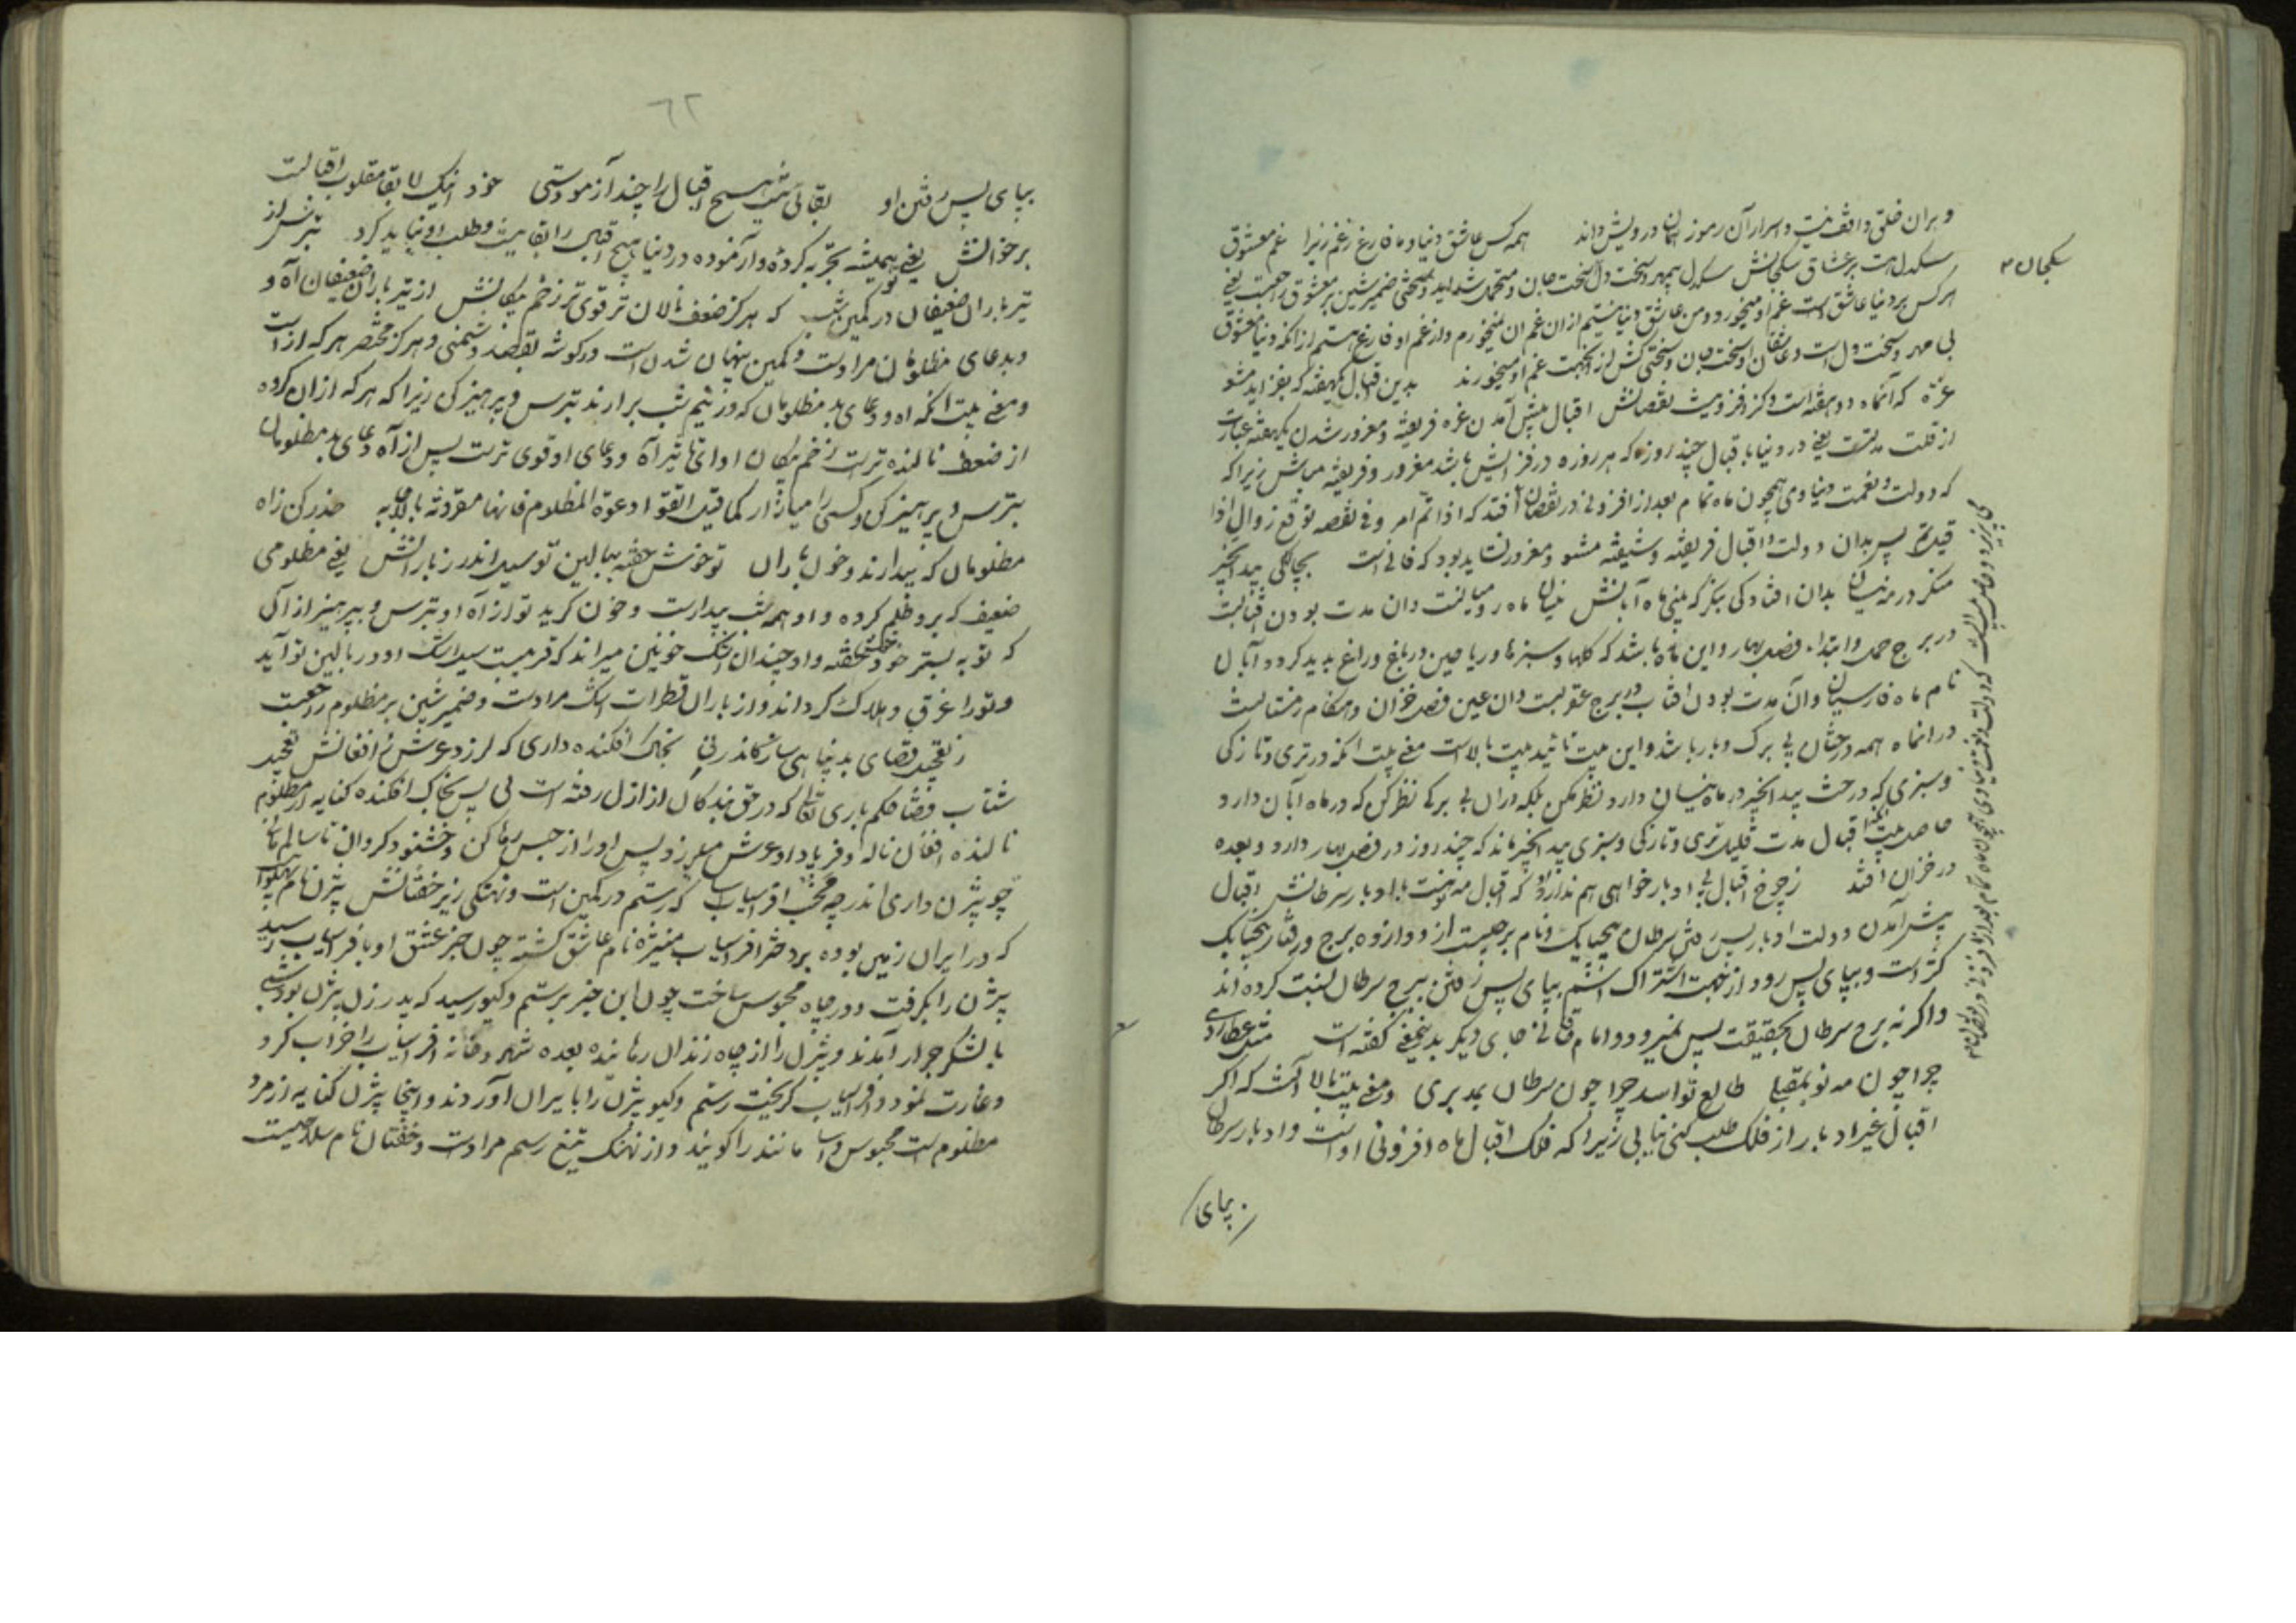 و بران خلق واقف نیست و اسرار آن رموز نهان درویش داند همه کس عاشق دنیا و ما فارغ ز غم زیرا غم معشوق
سنکدل است بر عشاق سکجانش سنکدل بیمهر و سخت دل سخت جان و متحمل شداید و سختی ضمیر شین بر معشوق راجعست یعنی
هر کس بر دنیا عاشق است غم او میخورد و من عاشق دنیا نیستم ازان غم ان نمیخورم و از غم او فارغ هستم از انکه دنیا معشوق
بی مهر و سخت دل است و عاشقان او سخت جان و سختی کش از انجهت غم او میخورند بدین اقبال یکهفته که بفزاید مشو
غره که آنماه دو هفته است و کز افزونیست نقصانش اقبال پیش آمدن غره فریفته و مغرور شدن یکهفته عبارت
از قلت مدتست یعنی در دنیا باقبال چند روزه که هر روزه در فزایش باشد مغرور و فریفته مباش زیرا که
که دولت و نعمت دنیاوی همچون ماه تمام بعد از افزونی در نقصان افتد که اذا تم امر دنی نقصه توقع زوال اذا
قیل تم پس بدان دولت و اقبال فریفته و شیفته مشو و مغرور نشاید بود که فانی است بچالاکی بید انجیر
منکر در مه نیسان بدان افتادکی بنکر که بینی ماه آبانش نیسان ماه رومیانست دان مدت بودن افتابست
در برج حمل و ابتداء فصل بهار و این ماه باشد که کلها و سبزها و ریاحین در باغ و راغ پدید کردد آبان
نام ماه فارسیان وآن مدت بودن افتاب در برج عقربست دان عین فصل خزان و هنکام زمستانست
در انماه همه درختان بی برک و بار باشد و این بیت تائید بیت بالاست معنی بیت انکه در تری و تازکی
و سبزی که درخت بید انجیر در ماه نیسان دارد نظر مکن بلکه دران بی برکی نظر کن که در ماه آبان دارد
حاصل بیت انکه اقبال مدت قلیل تری و تازکی و سبزی بید انجیر ماند که چند روز در فصل بهار دارد و بعده
در خزان افتد ز چرخ اقبال بی ادبار خواهی هم ندارد او که اقبال مه نوهست با ادبار سرطانش اقبال
پیش آمدن دولت ادبار پس رفتن سرطان پنجپایک و نام برجیست از دوازده برج و رفتار پنجپایک
کژ است و بپای پس رود از جهت اشتراک اسم بپای پس رفتن ببرج سرطان نسبت کرده اند
و اکرنه برج سرطان بحقیقت پس نمیرود و امام خاقانی جای دیکر بدینمعنی کفته است
چرا چون مه نو بمقبلی طالع تو اسد چرا چون سرطان بمدبری و معنی بیت بالا آنست که اکر
اقبال غیر ادبار از فلک طلب کنی نیابی زیرا که فلک اقبال ماه افزونی اوست و ادبار سرطان
بپای
سکجان ۳
٦٢
بپای پس رفتن او بقائی نیست هیچ اقبال را چند آزمودستی خود اینک لا بقا مقلوب اقبالست
برخوانش یعنی همیشه تجربه کرده و آزموده در دنیا هیچ اقبال را بقا نیست و طلب او نباید کرد بترس از
تیر باران ضعیفان در کمین شب که هر کز ضعف نالان تر قوی تر زخم پیکانش از تیر باران ضعیفان آه و
و بد عای مظلومان مراد است و کمین پنهان شدن است در کوشه بقصد دشمنی
و معنی بیت انکه اه و دعای بد مظلومان که در نیم شب برارند بترس و پرهیز کن زیرا که هر که ازان کروه
از ضعف نالنده تر است زخم پیکان او ای تاثیر آه و دعای او قوی تر است پس از آه و دعای بد مظلومان
بترس و پرهیز کن و کسی را میازار کما قیل اتقوا دعوة المظلوم فانها مقرونة بالاجابه حذر کن زاه
مظلومان که بیدارند و خون باران تو خوش خفته ببالین تو سیل اندر ز بارانش یعنی مظلومی
ضعیف که برو ظلم کرده و او همه شب بیدارست و خون کرید تو از آه او بترس و بپرهیز از آن
که تو به بستر خود خوش خفته و او چندان اشک خونین میراند که قریبست سیل اشک او در بالین تو آید
و تو را غرق و هلاک کرداند و از باران قطرات اشک مراد است و ضمیر شین بر مظلوم راجعست
ز تعجیل قضای بد پناهی ساز کاندر پی بخاک افکنده داری که لرزد عرش ز افغانش تعجیل
شتاب قضا حکم باری تعالی که در حق بندکان از ازل رفته است پی پس بخاک افکنده کنایه از مظلوم
نالنده افغان ناله و فریاد او عرش میلرزد پس او را از حبس رها کن و خشنود کردان تا سالم مانی
چو بیژن داری اندر چه مخسب افراسیاب که رستم در کمین است و نهنکی زیر خفتانش بیژن نام پهلوان
که در ایران زمین بوده بر دختر افراسیاب منیژه نام عاشق کشته چون خبر عشق او بافراسیاب رسید
بیژن را بکرفت و در چاه محبوس ساخت چون این خبر برستم و کیو رسید که پدر زن بیژن بودستی
با لشکر جرار آمدند و بیژن را از چاه زندان رهانیده بعده شهر و خانه افراسیاب را خراب کرد
و غارت نمود و افراسیاب کریخت رستم و کیو بیژن را بایران آوردند و اینجا بیژن کنایه از مرد
مظلوم است محبوس و آسا مانند را کویند و از نهنک تیغ رستم مراد است و خفتان نام سلاحیست